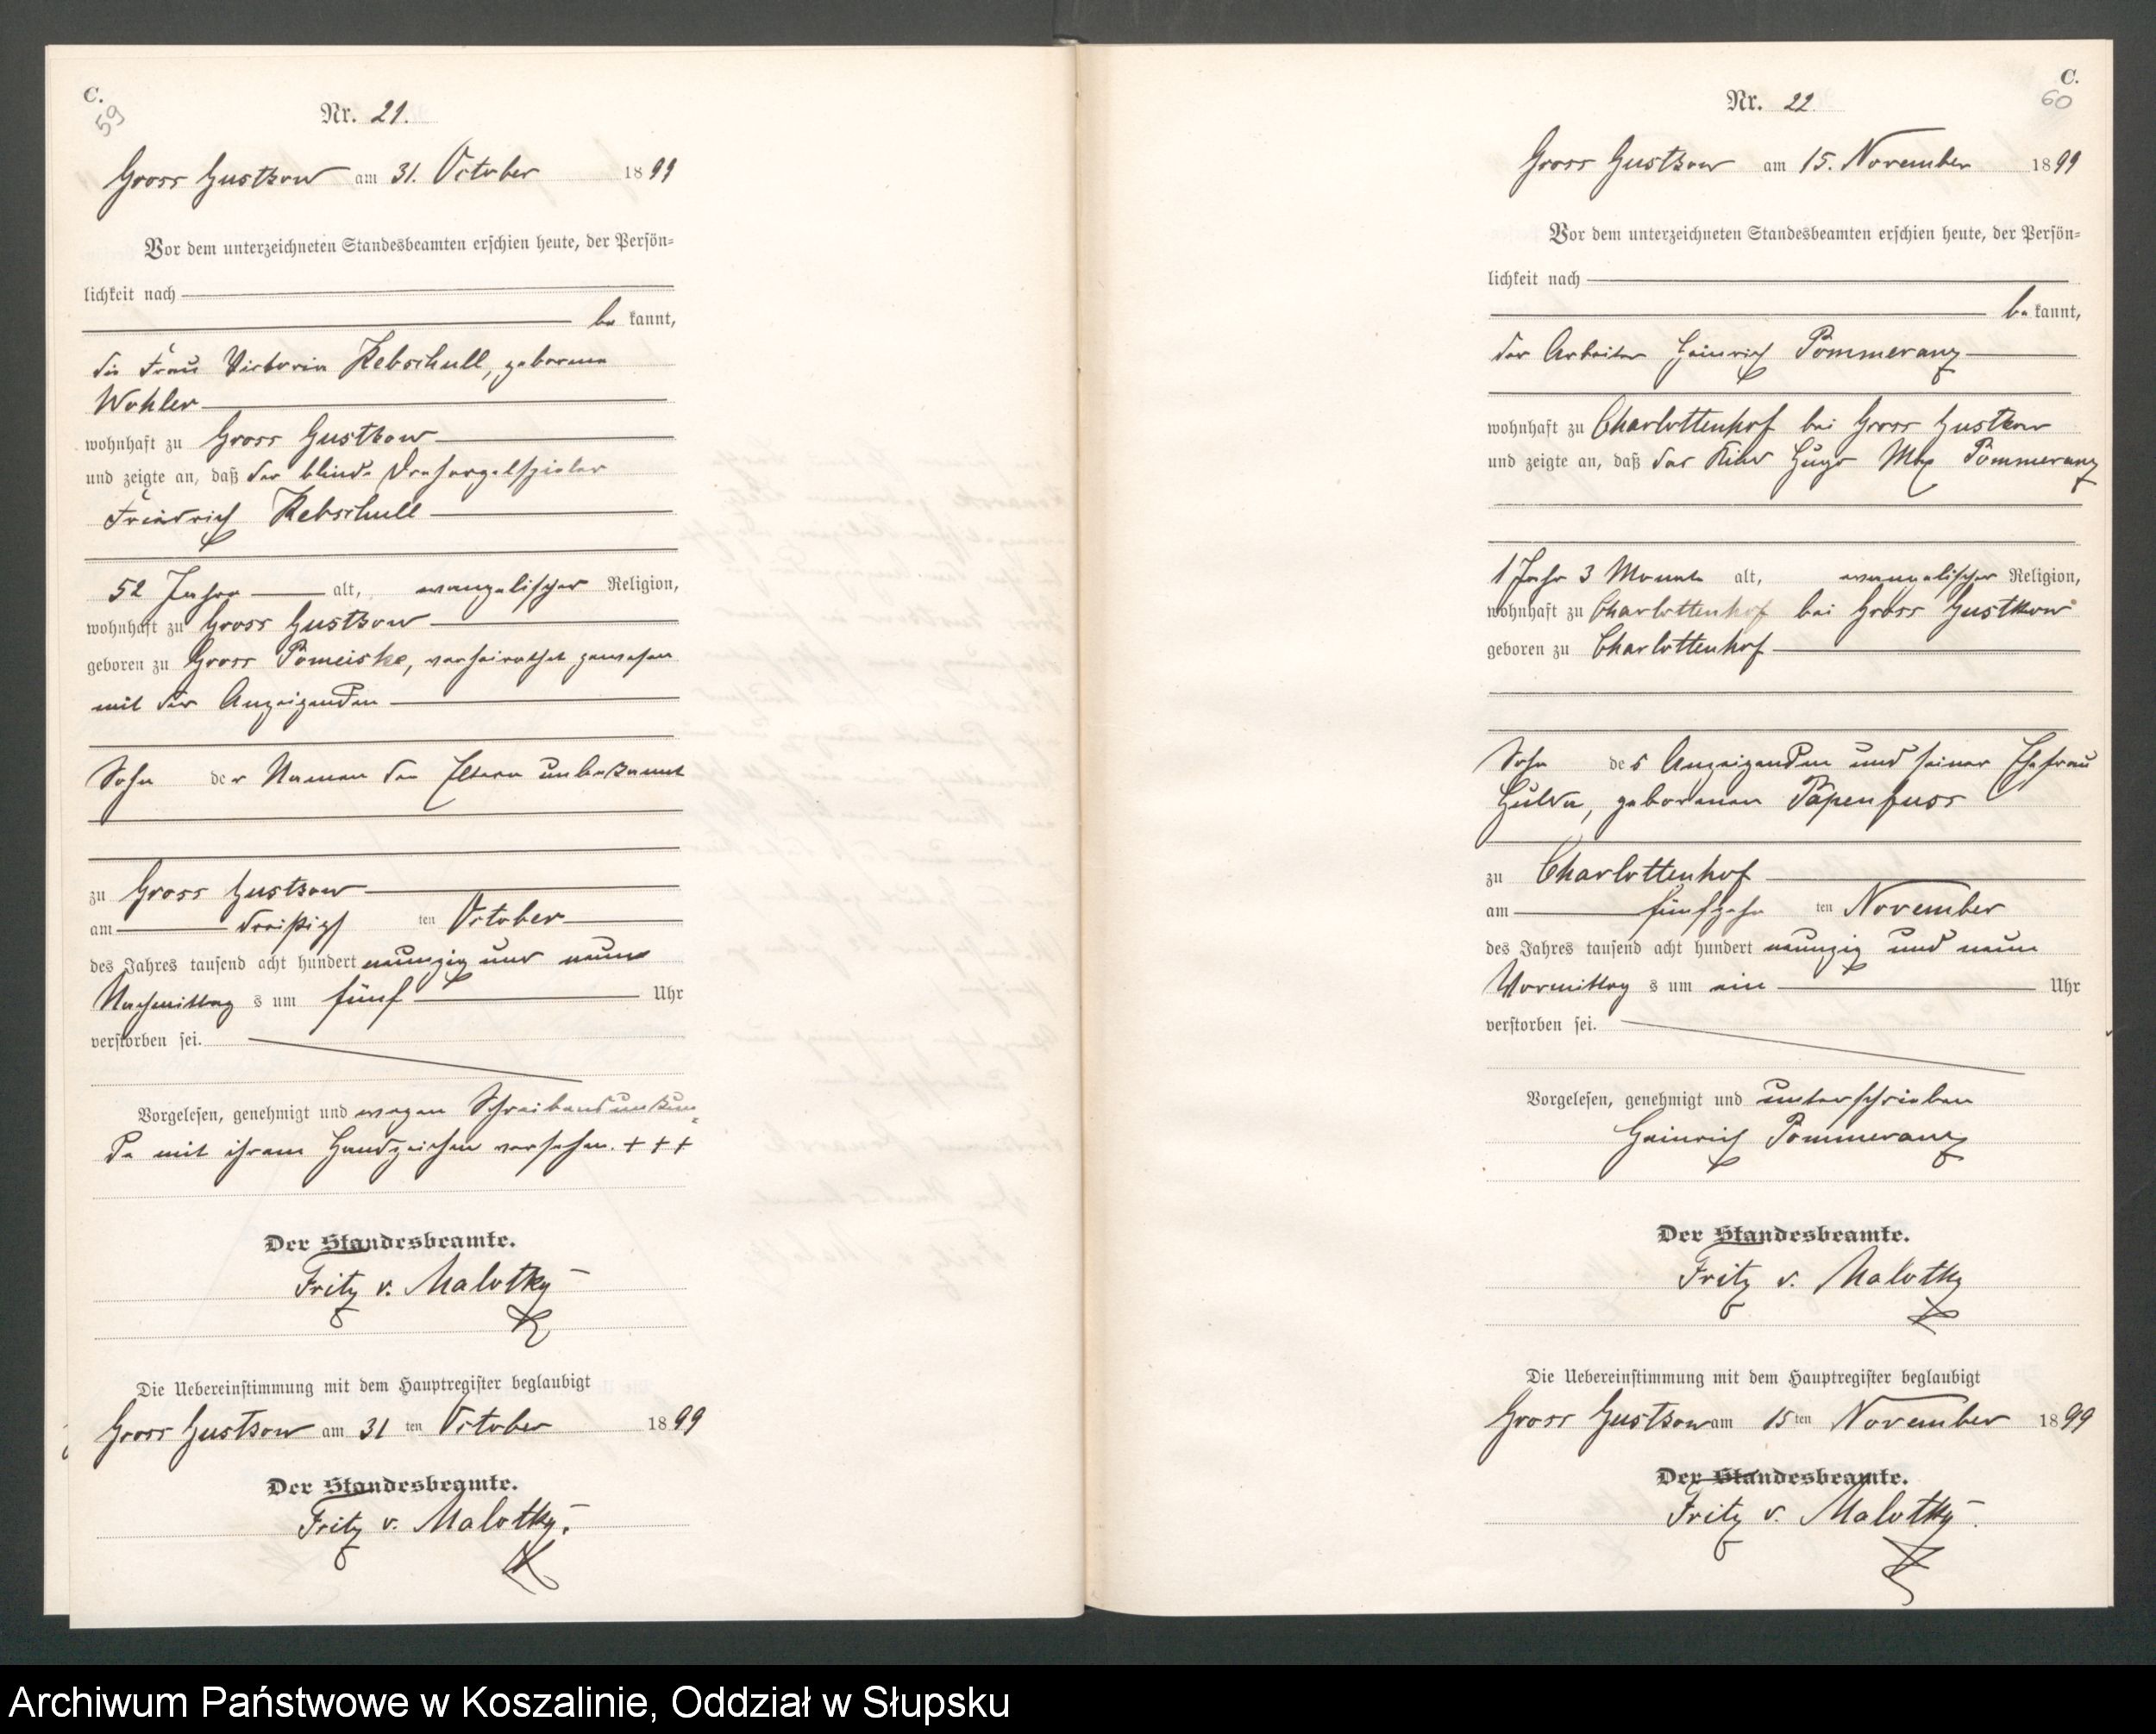 C.
59
Nr. 21.
Gross Gustkow am 31. October 1899
Vor dem unterzeichneten Standesbeamten erschien heute, der Persön=
lichkeit nach
be kannt,
die Frau Victoria Kebschull, geborene
Wohler
wohnhaft zu Gross Gustkow
und zeigte an, daß der blinde Drehorgelspieler
Friedrich Kebschull
52 Jahre alt, evangelischer Religion,
wohnhaft zu Gross Gustkow
geboren zu Gross Pomeiske, verheirathet gewesen
mit der Anzeigenden
Sohn der Namen der Eltern unbekannt
zu Gross Gustkow
am dreißigs ten October
des Jahres tausend acht hundert neunzig und neun
Nachmittag s um fünf Uhr
verstorben sei.
Vorgelesen, genehmigt und wegen Schreibensunkun=
de mit ihrem Handzeichen versehen. + + +
Der Standesbeamte.
Fritz v. Malotky
Die Uebereinstimmung mit dem Hauptregister beglaubigt
Gross Gustkow am 31 ten October 1899
Der Standesbeamte.
Fritz v. Malotky.
C.
60
Nr. 22
Gross Gustkow am 15. November 1899
Vor dem unterzeichneten Standesbeamten erschien heute, der Persön=
lichkeit nach
be kannt,
der Arbeiter Heinrich Pommeranz
wohnhaft zu Charlottenhof bei Gross Gustkow
und zeigte an, daß das Kind Hugo Max Pommeranz
1 Jahr 3 Monate alt, evangelischer Religion,
wohnhaft zu Charlottenhof bei Gross Gustkow
geboren zu Charlottenhof
Sohn des Anzeigenden und seiner Ehefrau
Hulda, geborenen Papenfuss
zu Charlottenhof
am fünfzehn ten November
des Jahres tausend acht hundert neunzig und neun
Vormittag s um ein Uhr
verstorben sei.
Vorgelesen, genehmigt und unterschrieben
Heinrich Pommeranz
Der Standesbeamte.
Fritz v. Malotky
Die Uebereinstimmung mit dem Hauptregister beglaubigt
Gross Gustkow am 15 ten November 1899
Der Standesbeamte.
Fritz v. Malotky.
Archiwum Państwowe w Koszalinie, Oddział w Słupsku